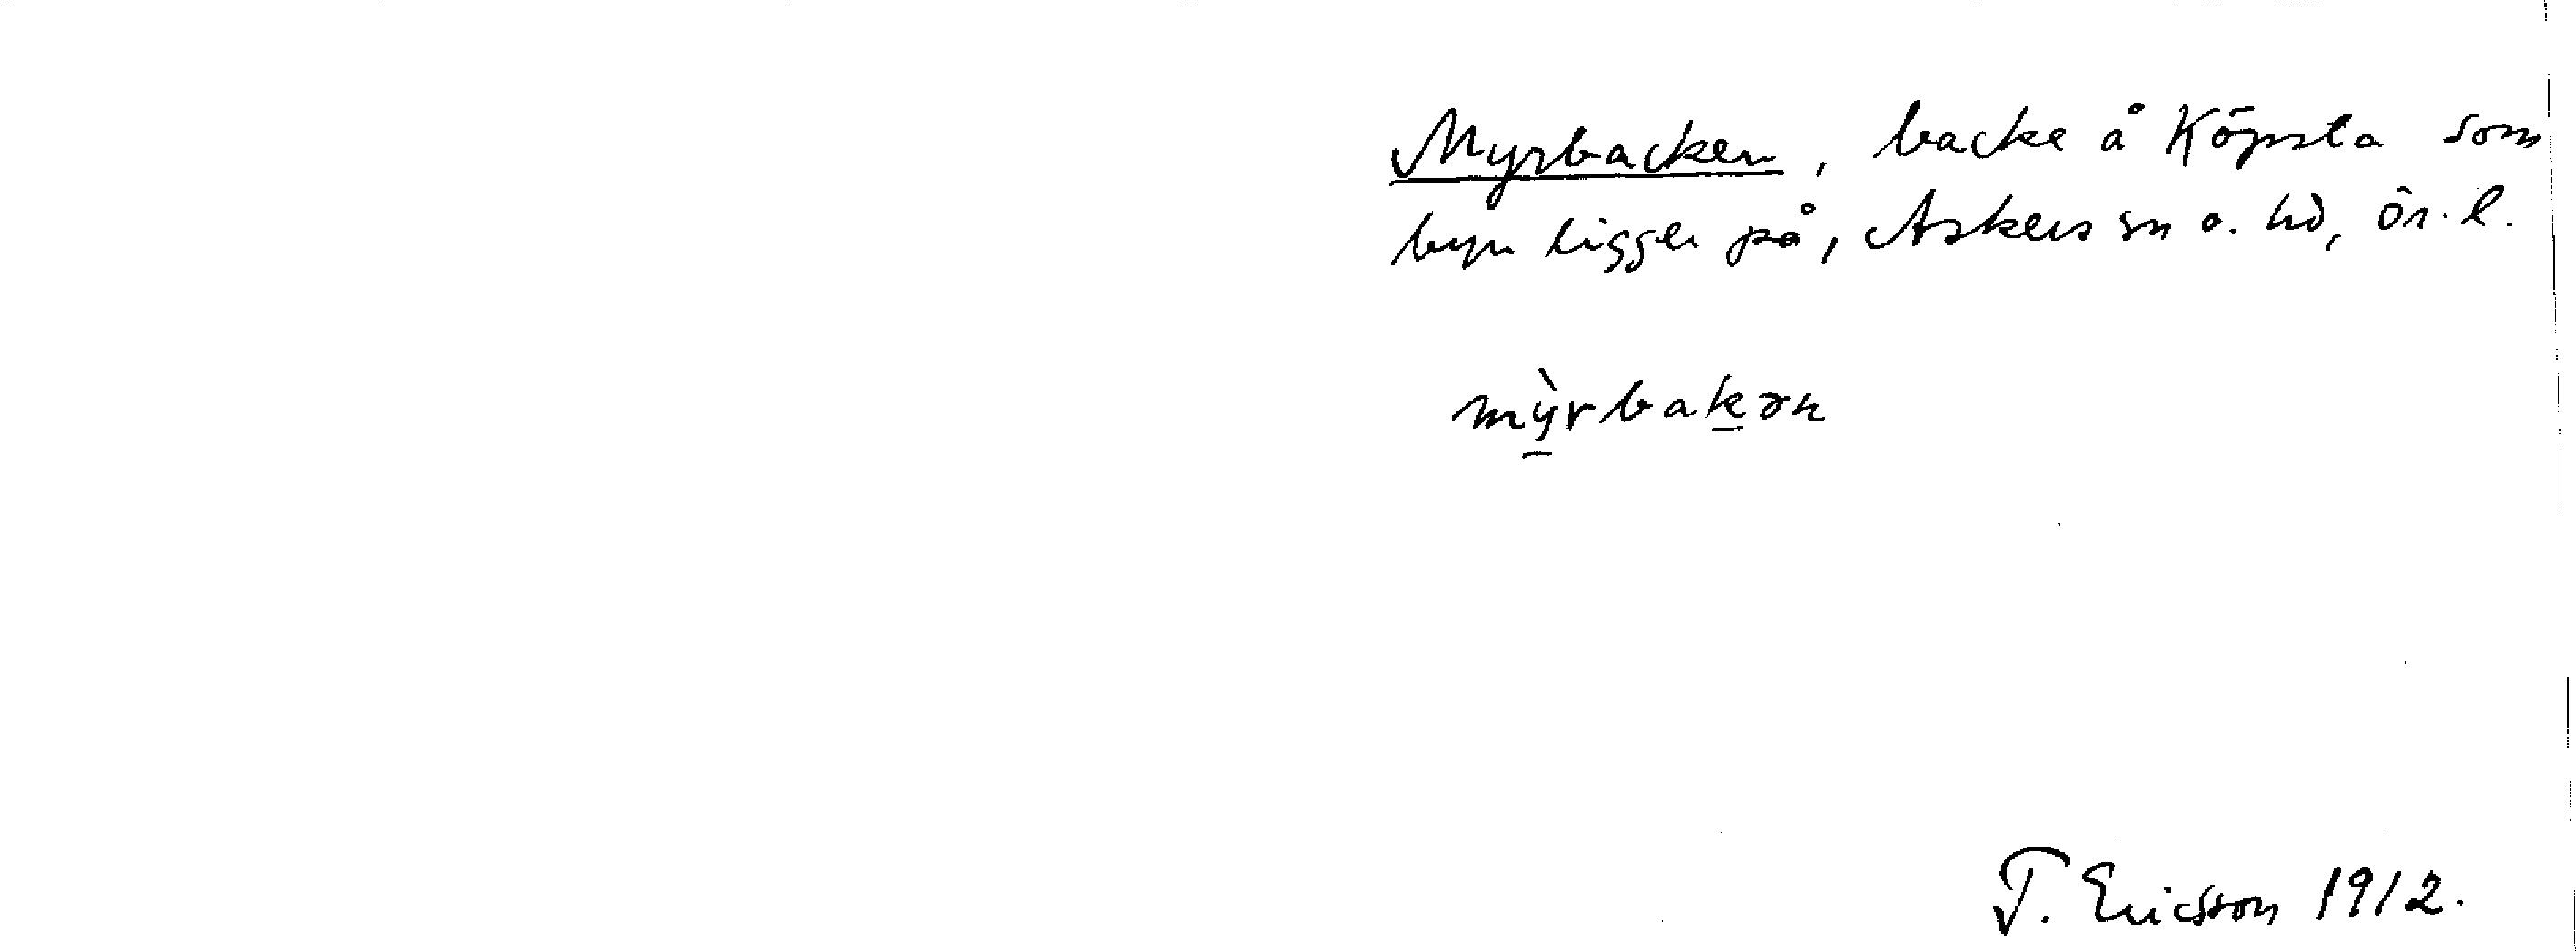 Myrbacken, backe å Köpsta som
byn ligger på, Askers sn o. hd, ör. l.
mỳrbakən
T. Ericsson 1912.